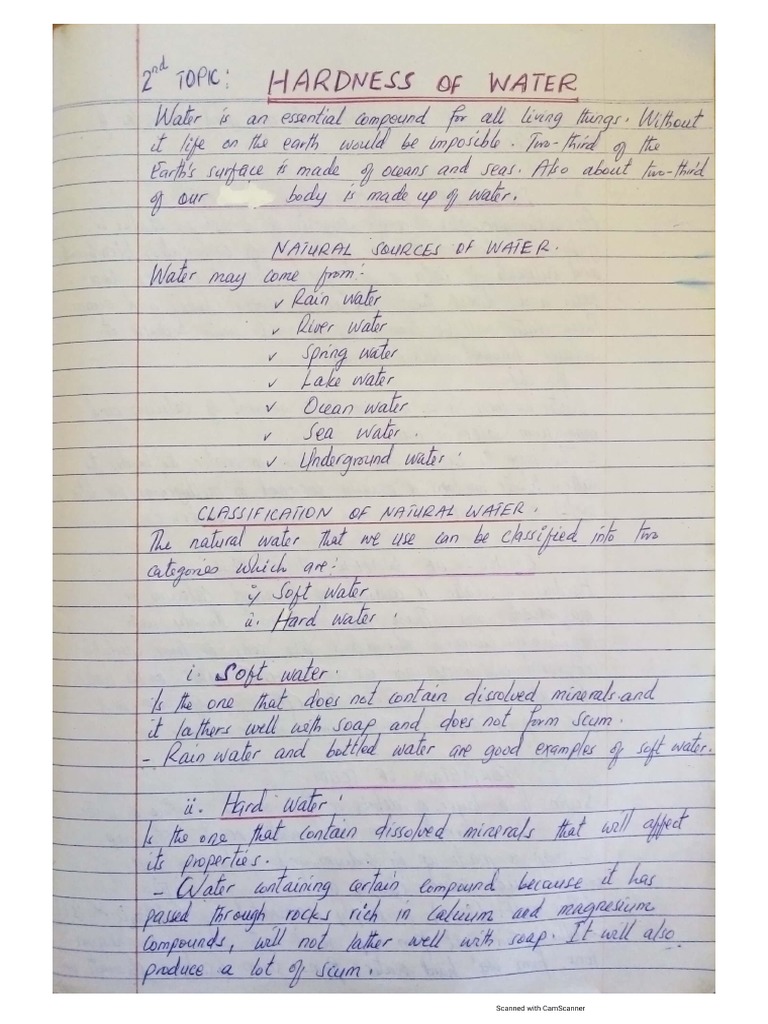 2nd TOPIC: HARDNESS OF WATER
Water is an essential compound for all living things. Without
it life on the earth would be imposible. Two-third of the
Earth's surface is made of oceans and seas. Also about two-third
of our body is made up of water.
NATURAL SOURCES OF WATER.
Water may come from:
✓ Rain water
✓ River water
✓ Spring water
✓ Lake water
✓ Ocean water
✓ Sea water.
✓ Underground water.
CLASSIFICATION OF NATURAL WATER.
The natural water that we use can be classified into two
categories which are:
i) Soft water
ii. Hard water.
i. Soft water.
Is the one that does not contain dissolved minerals and
it lathers well with soap and does not form scum.
- Rain water and bottled water are good examples of soft water.
ii. Hard water:
Is the one that contain dissolved minerals that will affect
its properties.
- Water containing certain compound because it has
passed through rocks rich in calcium and magnesium
compounds, will not lather well with soap. It will also
produce a lot of scum.
Scanned with CamScanner